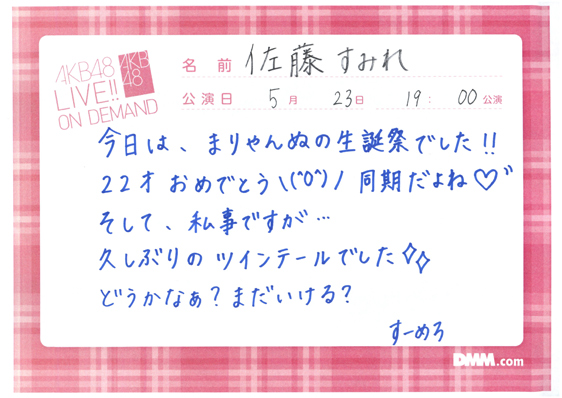 AKB48
LIVE!!
ON DEMAND
AKB
48
名前 佐藤 すみれ
公演日 5月 23日 19: 00公演
今日は、まりやんぬの生誕祭でした!!
22才 おめでとう\(^0^)/ 同期だよね♡゛
そして、私事ですが…
久しぶりの ツインテールでした✧✧
どうかなぁ?まだいける?
すーめろ
DMM.com